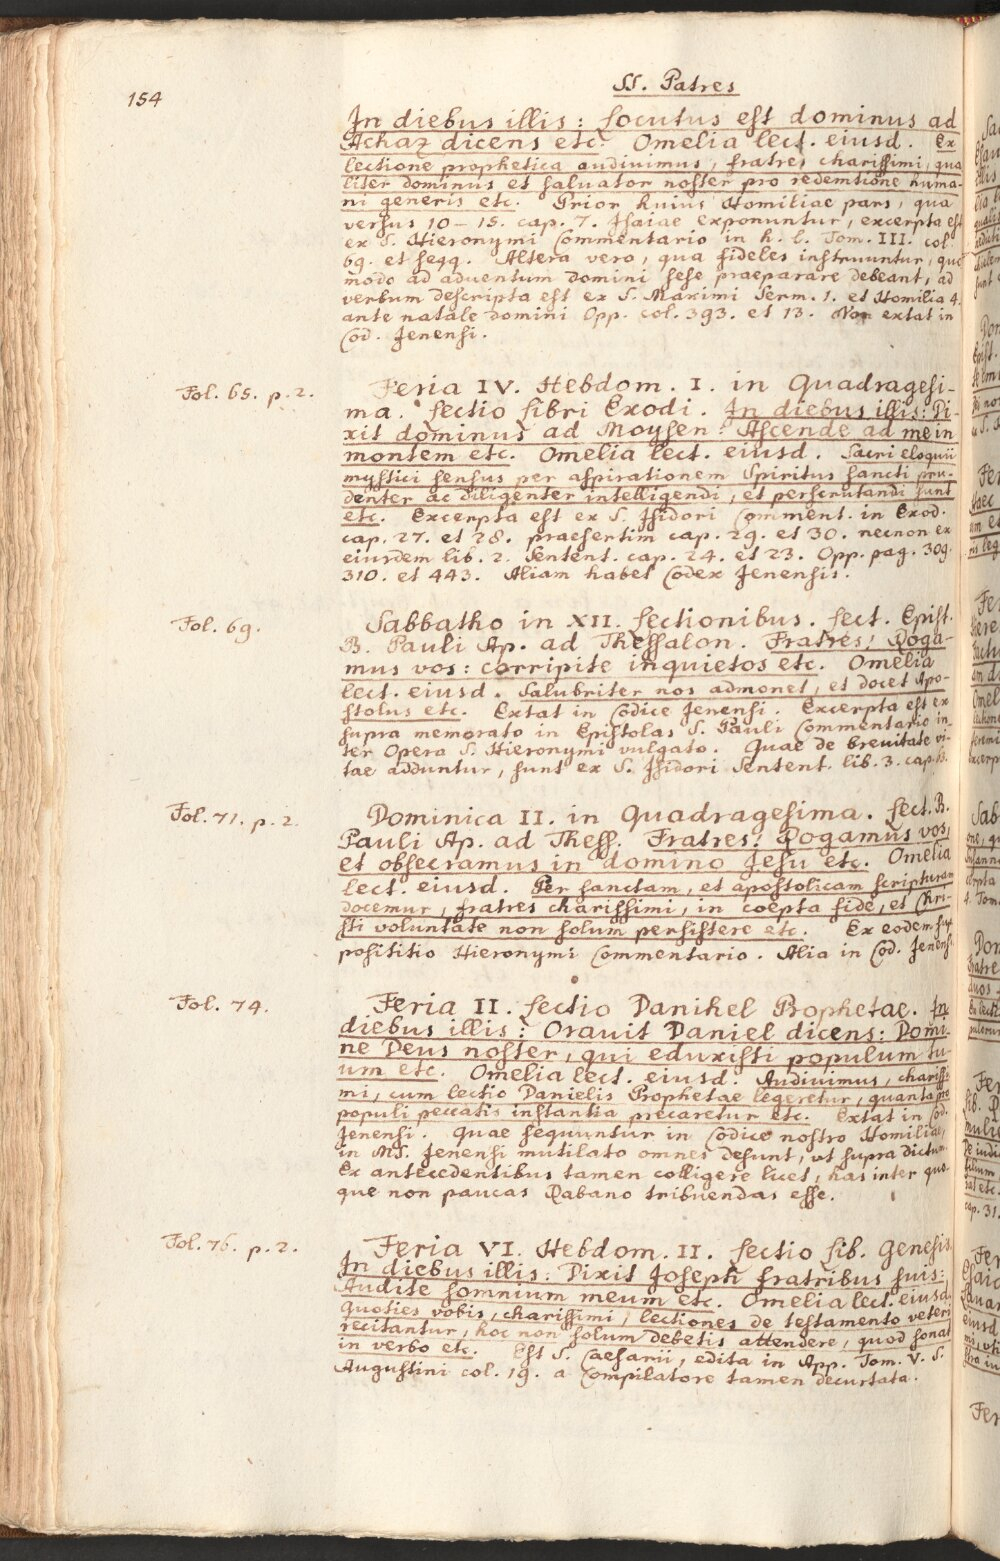 154
SS. Patres
In diebus illis: Locutus est dominus ad
Achaz dicens etc. Omelia lect. eiusd. Ex
lectione prophetica audivimus, fratres charissimi, qua
liter dominus et saluator noster pro redemtione huma-
ni generis etc. Prior huius Homiliae pars, qua
versus 10–15. cap. 7. Isaiae exponuntur, excerpta est
ex S. Hieronymi Commentario in h. l. Tom. III. col.
69. et seqq. Altera vero, qua fideles instruuntur, quo
modo ad aduentum domini sese praeparare debeant, ad
verbum descripta est ex S. Maximi Serm. 1. et Homilia 4.
ante natale domini Opp. col. 393. et 13. Non extat in
Cod. Jenensi.
Fol. 65. p. 2.
Feria IV. Hebdom. I. in Quadragesi-
ma. Lectio Libri Exodi. In diebus illis: Di-
xit dominus ad Moysen: Ascende ad me in
montem etc. Omelia lect. eiusd. Sacri eloquii
mystici sensus per aspirationem Spiritus sancti pru-
denter ac diligenter intelligendi, et perscrutandi sunt
etc. Excerpta est ex S. Isidori Comment. in Exod.
cap. 27. et 28. praesertim cap. 29. et 30. necnon ex
eiusdem lib. 2. Sentent. cap. 24. et 23. Opp. pag. 309.
310. et 443. Aliam habet Codex Jenensis.
Fol. 69.
Sabbatho in XII. Lectionibus. Lect. Epist.
B. Pauli Ap. ad Thessalon. Fratres! Roga-
mus vos: corripite inquietos etc. Omelia
lect. eiusd. Salubriter nos admonet, et docet Apo-
stolus etc. Extat in Codice Jenensi. Excerpta est ex
supra memorato in Epistolas S. Pauli Commentario in-
ter Opera S. Hieronymi vulgato. Quae de breuitate vi-
tae adduntur, sunt ex S. Isidori Sentent. lib. 3. cap.
Fol. 71. p. 2.
Dominica II. in Quadragesima. Lect. B.
Pauli Ap. ad Thess. Fratres! Rogamus vos,
et obsecramus in domino Jesu etc. Omelia
lect. eiusd. Per sanctam, et apostolicam scripturam
docemur, fratres charissimi, in coepta fide, et Chri-
sti voluntate non solum persistere etc. Ex eodem sup
posititio Hieronymi Commentario. Alia in Cod. Jenensi.
Fol. 74.
Feria II. Lectio Danihel Prophetae. In
diebus illis: Orauit Daniel dicens: Domi-
ne Deus noster, qui eduxisti populum tu-
um etc. Omelia lect. eiusd. Audiuimus, charissi
mi, cum lectio Danielis Prophetae legeretur, quanta pro
populi peccatis instantia precaretur etc. Extat in Cod.
Jenensi. Quae sequuntur in Codice nostro Homiliae,
in MS. Jenensi mutilato omnes desunt, ut supra dictum.
Ex antecedentibus tamen colligere licet, has inter quo-
que non paucas Rabano tribuendas esse.
Fol. 76. p. 2.
Feria VI. Hebdom. II. Lectio Lib. Genesis.
In diebus illis: Dixit Joseph fratribus suis:
Audite somnium meum etc. Omelia lect. eiusd.
Quoties vobis, charissimi, lectiones de testamento veteri
recitantur, hoc non solum debetis attendere, quod sonat
in verbo etc. Est S. Caesarii, edita in App. Tom. V. S.
Augustini col. 19. a Compilatore tamen decurtata.